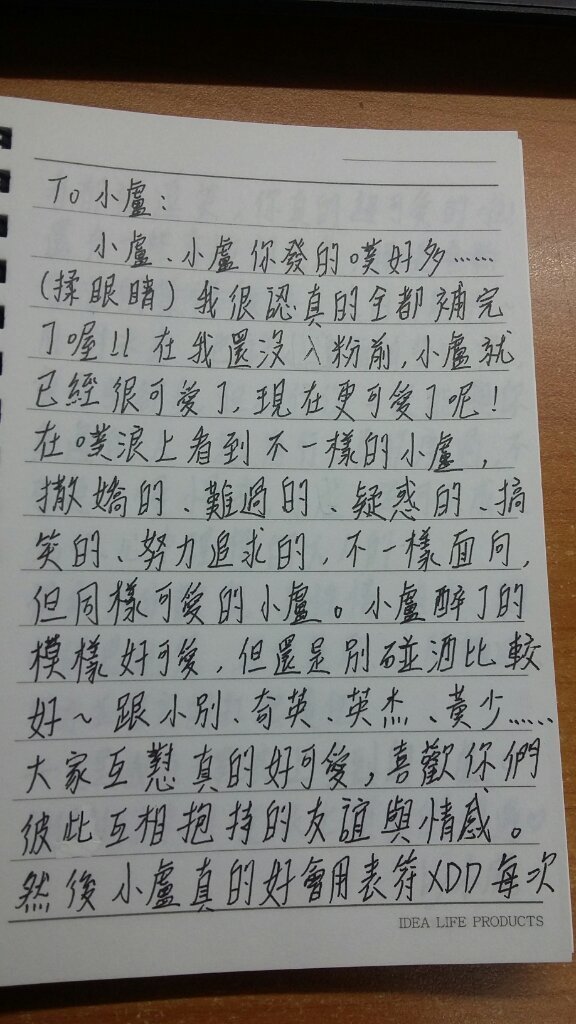 To 小盧：
小盧、小盧你發的噗好多……
(揉眼睛) 我很認真的全都補完
了喔!! 在我還沒入粉前,小盧就
已經很可愛了,現在更可愛了呢!
在噗浪上看到不一樣的小盧,
撒嬌的、難過的、疑惑的、搞
笑的、努力追求的,不一樣面向,
但同樣可愛的小盧。小盧醉了的
模樣好可愛,但還是別碰酒比較
好～跟小別、奇英、英杰、黃少……
大家互懟真的好可愛,喜歡你們
彼此互相抱持的友誼與情感。
然後小盧真的好會用表符XDD每次
IDEA LIFE PRODUCTS